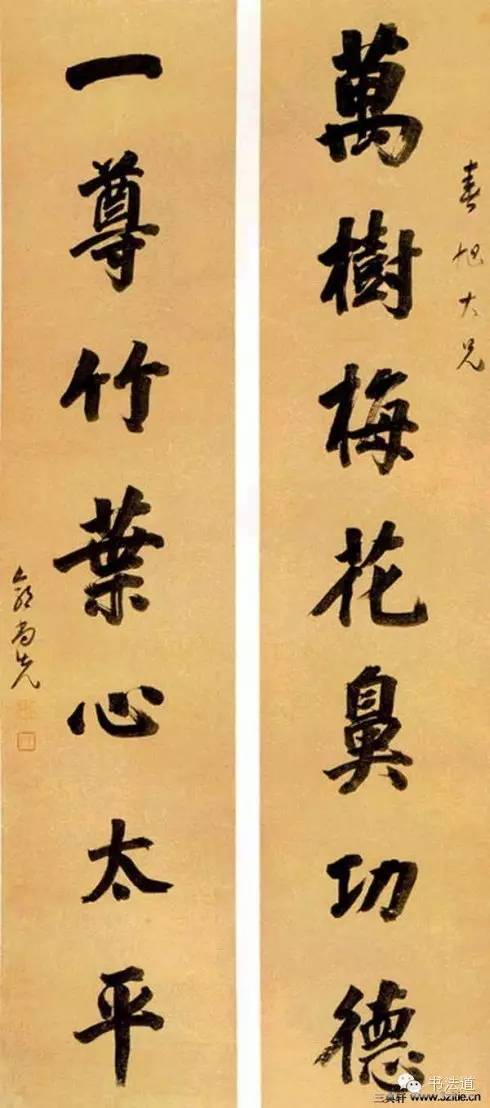 春旭大兄
萬樹梅花鼻功德
一尊竹葉心太平
郭尚先
书法道
三莫轩 www.520tie.cn